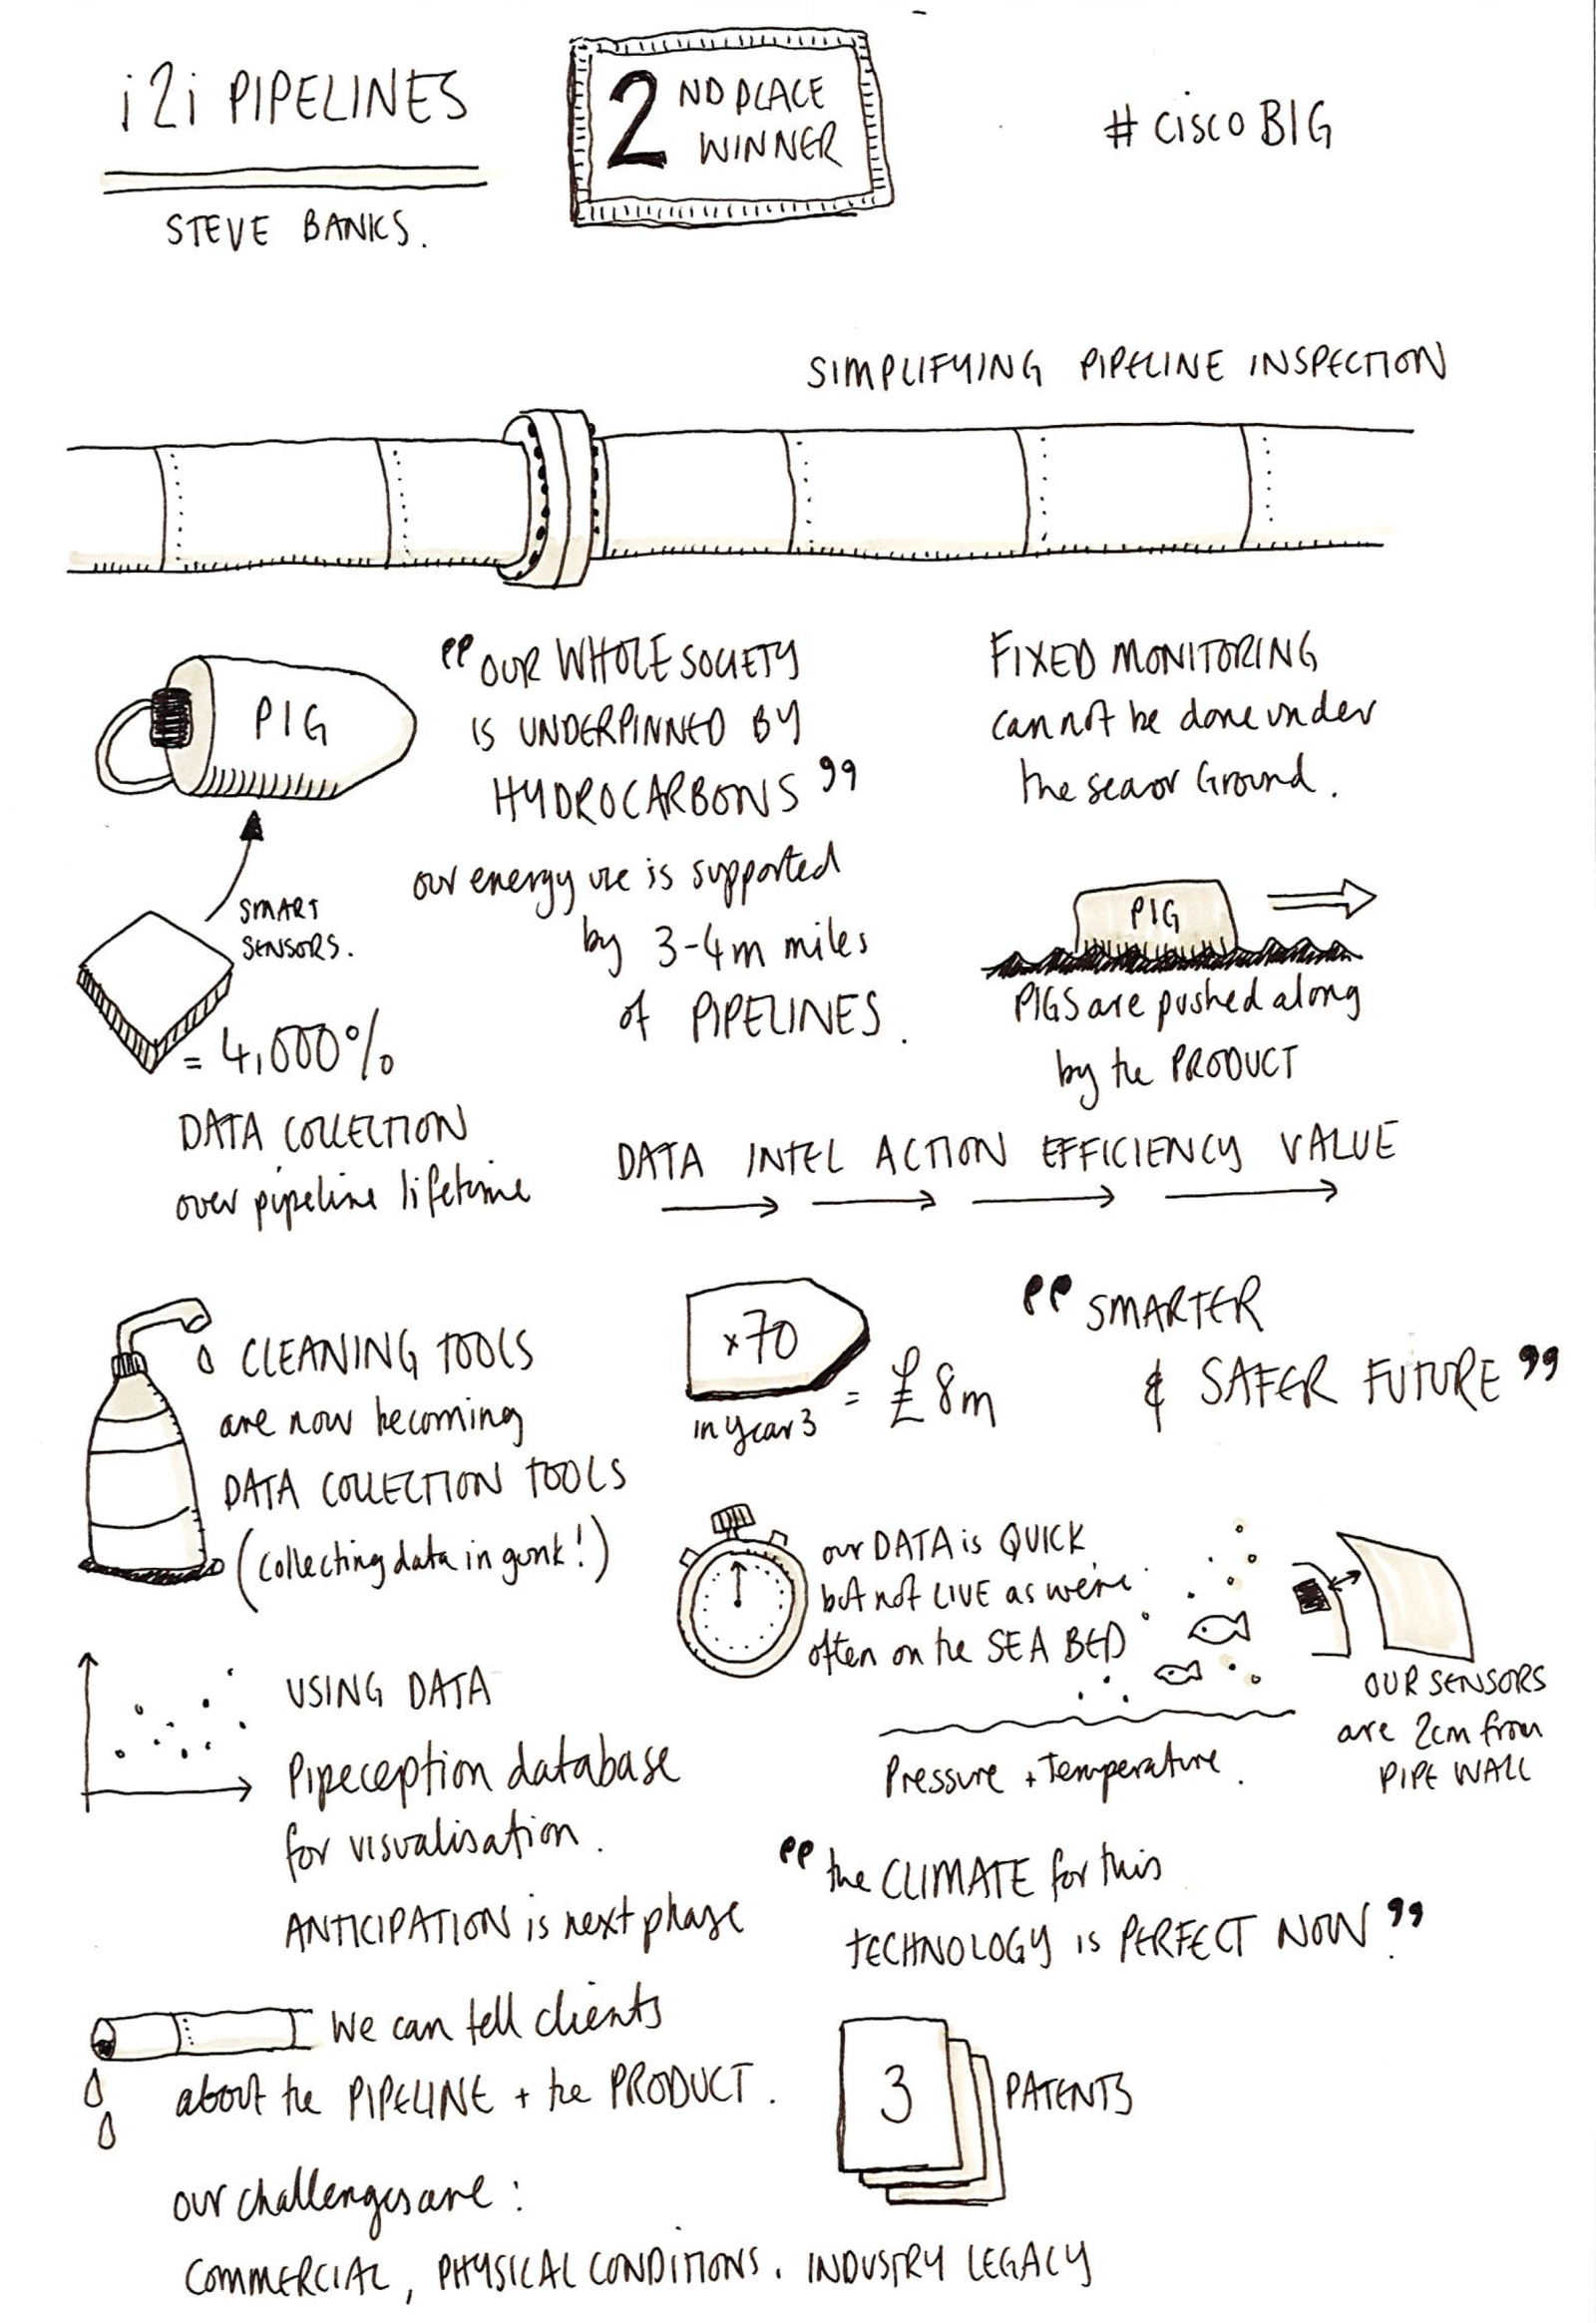 i2i PIPELINES
STEVE BANKS.
2ND PLACE
WINNER
# CISCO BIG
SIMPLIFYING PIPELINE INSPECTION
PIG
SMART
SENSORS.
= 4,000%
DATA COLLECTION
over pipeline lifetime
"OUR WHOLE SOCIETY
IS UNDERPINNED BY
HYDROCARBONS"
our energy use is supported
by 3-4m miles
of PIPELINES.
FIXED MONITORING
cannot be done under
the sea or Ground.
PIG
PIGS are pushed along
by the PRODUCT
DATA INTEL ACTION EFFICIENCY VALUE
CLEANING TOOLS
are now becoming
DATA COLLECTION TOOLS
(collecting data in gunk!)
x70
in year 3
= £8m
"SMARTER
& SAFER FUTURE"
our DATA is QUICK,
but not LIVE as we're
often on the SEA BED
Pressure + Temperature.
OUR SENSORS
are 2cm from
PIPE WALL
USING DATA
Pipeception database
for visualisation.
ANTICIPATION is next phase
"the CLIMATE for this
TECHNOLOGY IS PERFECT NOW."
We can tell clients
about the PIPELINE + the PRODUCT.
3
PATENTS
our challenges are:
COMMERCIAL, PHYSICAL CONDITIONS. INDUSTRY LEGACY